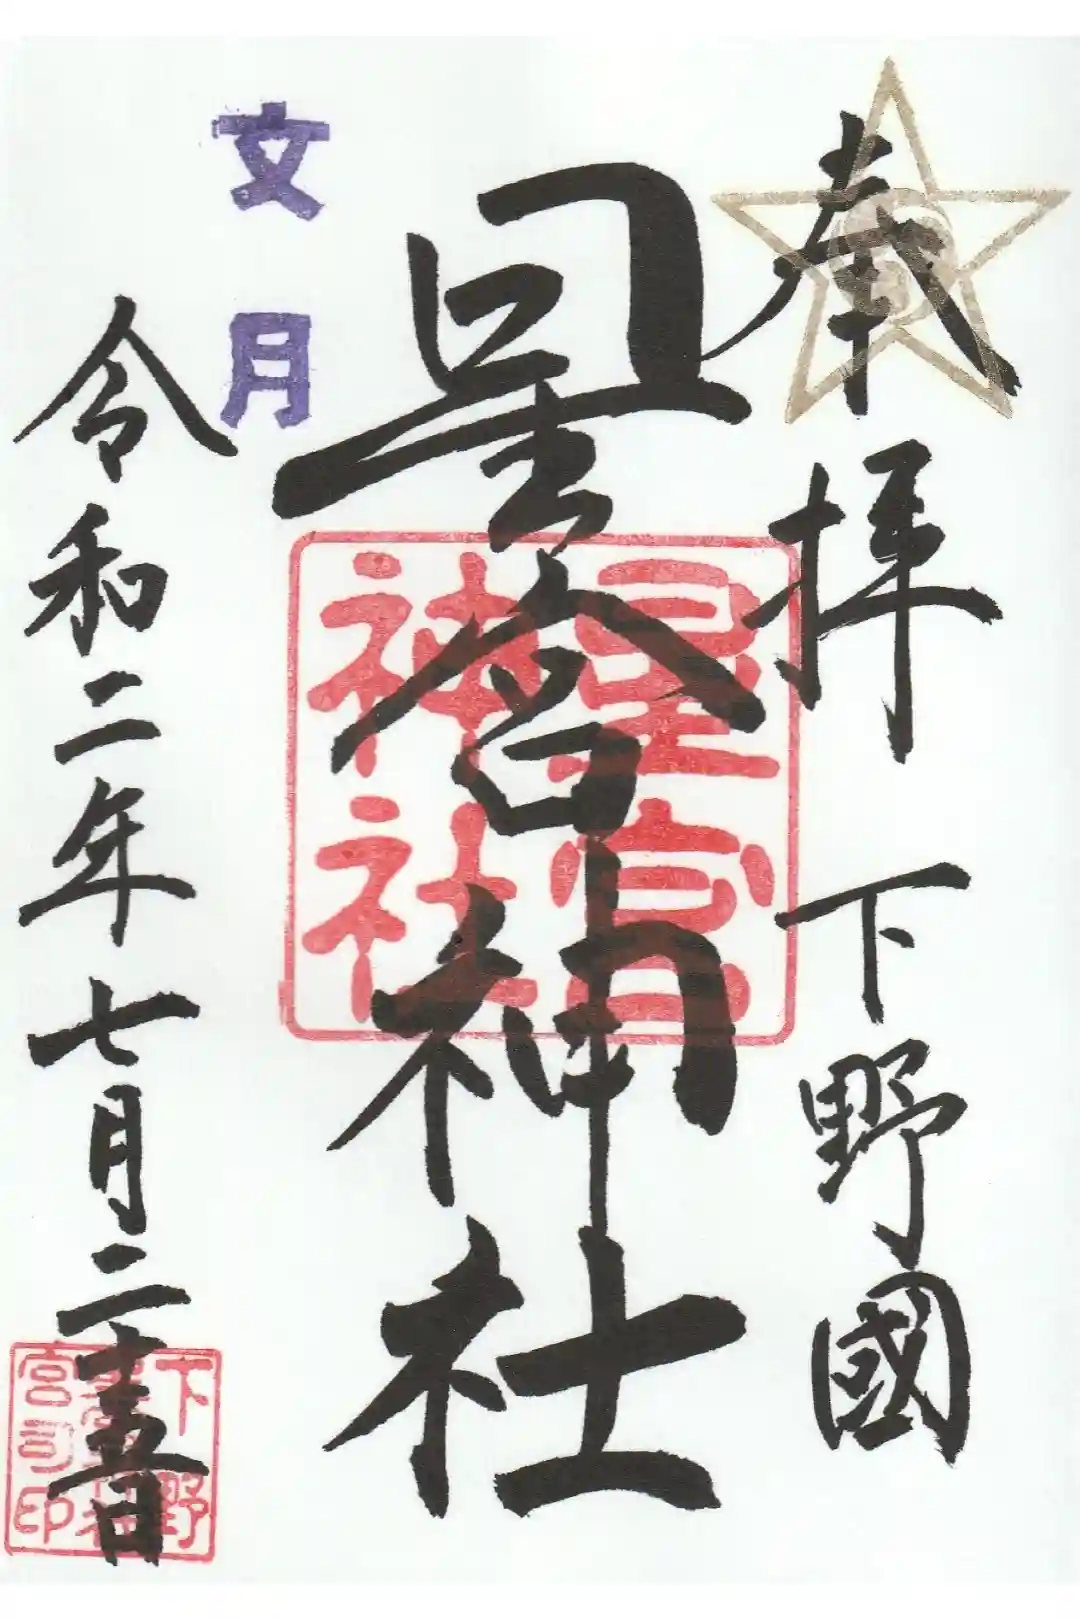 奉拝 下野國
星宮神社
文月
令和二年七月二十五日
星宮
神社
下野
星宮神社
宮司印